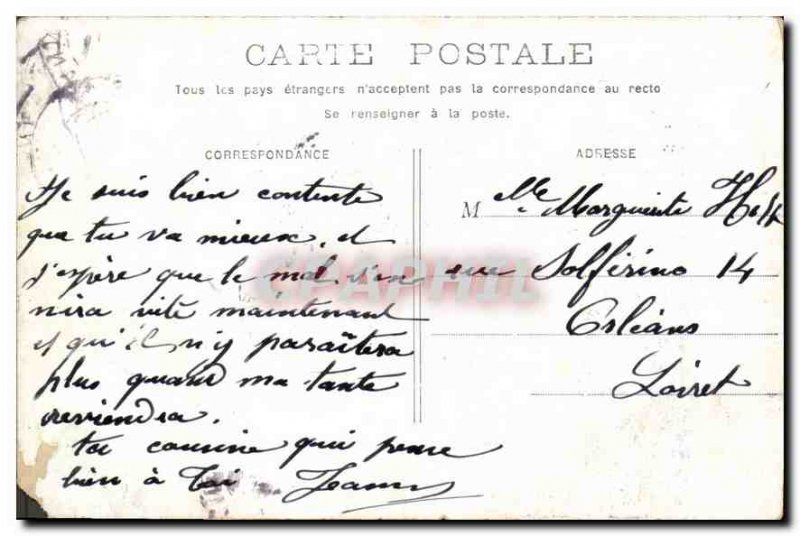 CARTE POSTALE
Tous les pays étrangers n'acceptent pas la correspondance au recto
Se renseigner à la poste.
CORRESPONDANCE
Je suis bien contente
que tu va mieux, et
j'espère que le mal s'en
nira vite maintenant
et qu'il n'y paraîtera
plus quand ma tante
reviendra.
ta cousine qui pense
bien à toi Jeanne
ADRESSE
M lle Marguerite
rue Solférino 14
Orléans
Loiret
CPAPHIL